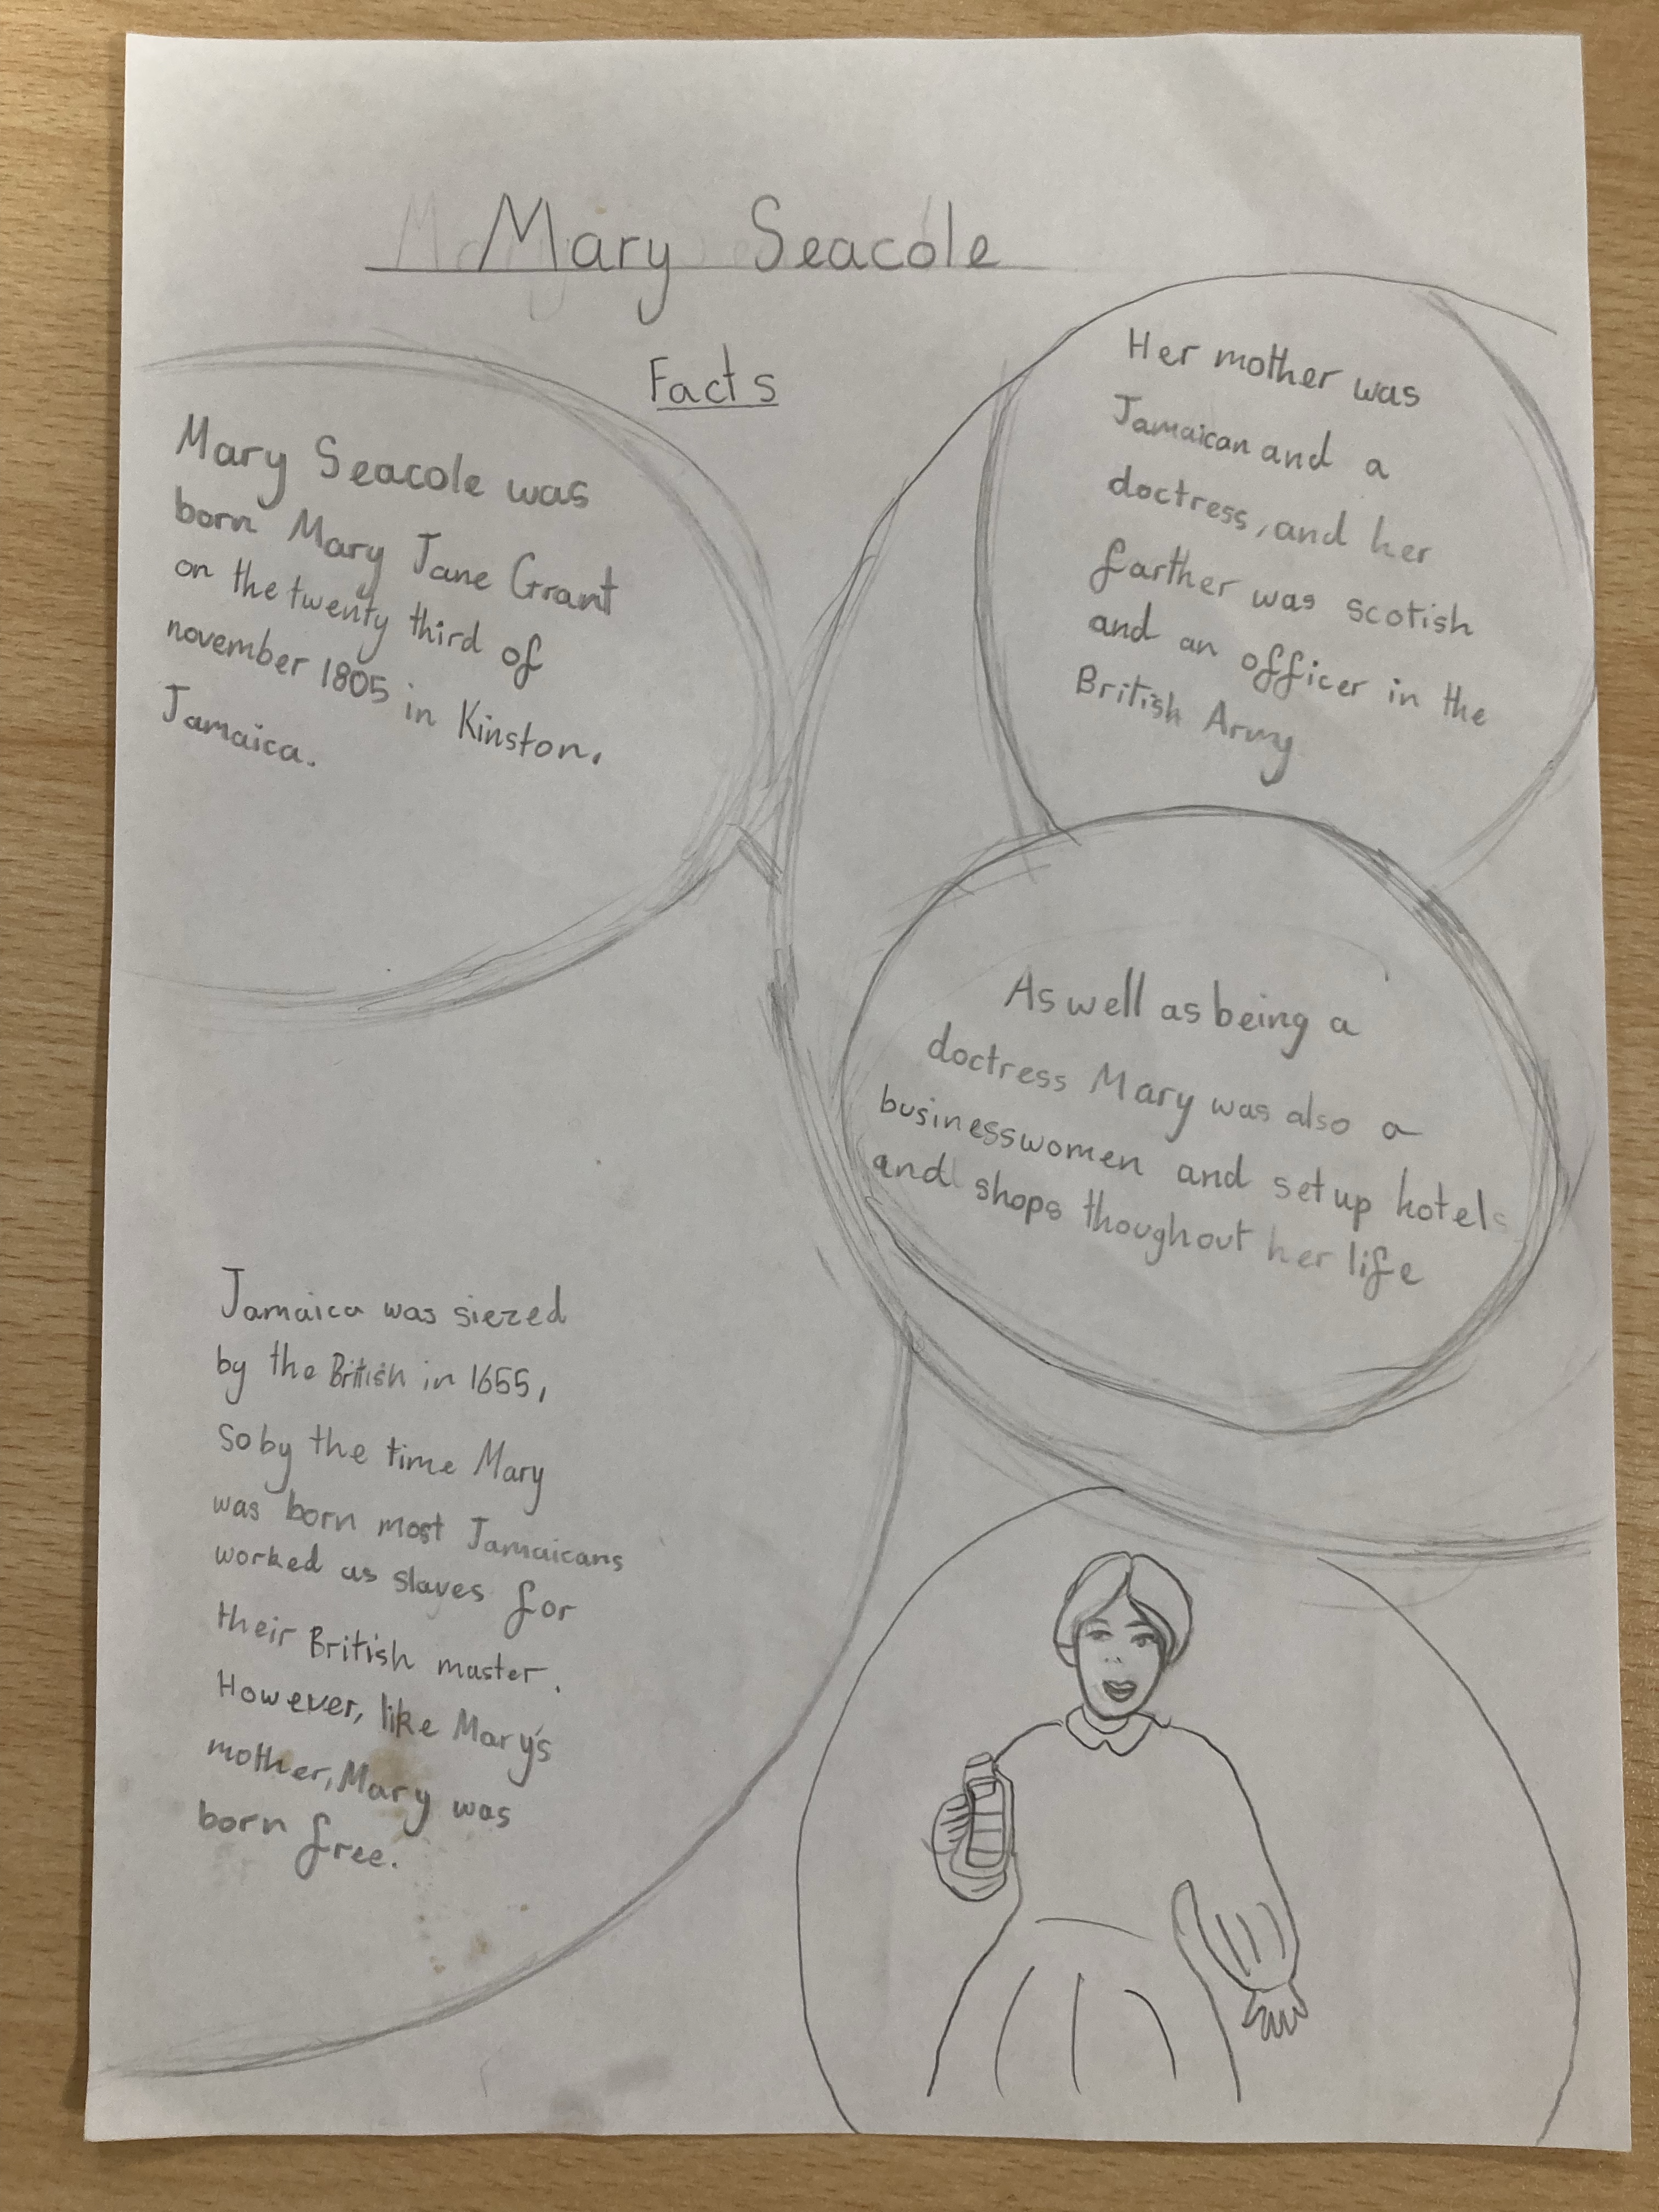 Mary Seacole
Facts
Mary Seacole was
born Mary Jane Grant
on the twenty third of
november 1805 in Kinston,
Jamaica.
Her mother was
Jamaican and a
doctress, and her
farther was scotish
and an officer in the
British Army
As well as being a
doctress Mary was also a
businesswomen and set up hotels
and shops thoughout her life
Jamaica was siezed
by the British in 1655,
so by the time Mary
was born most Jamaicans
worked as slaves for
their British master.
However, like Mary's
mother, Mary was
born free.